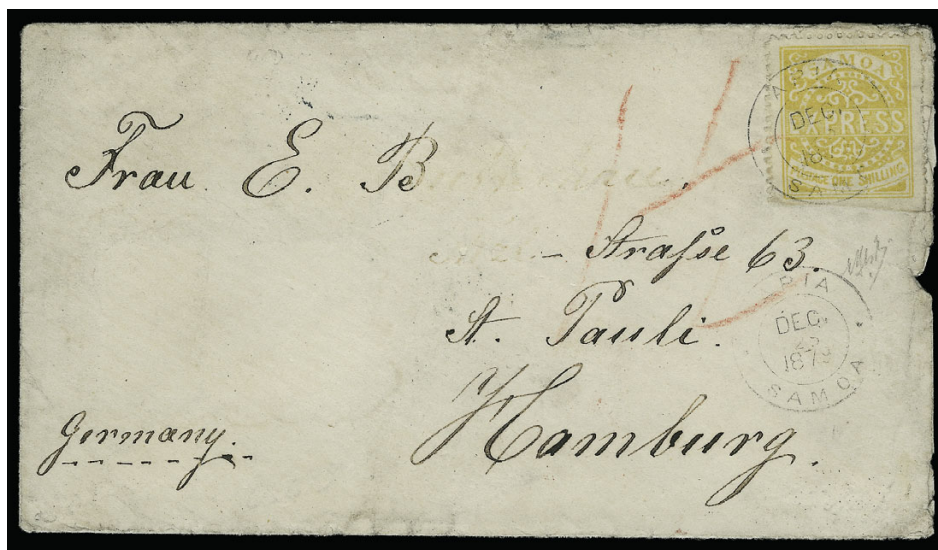 SAMOA
EXPRESS
POSTAGE ONE SHILLING
DEC.
SA
Frau E. B
- Straſse 63.
St. Pauli.
Hamburg.
Germany.
PIA
DEC.
1879
SAMOA